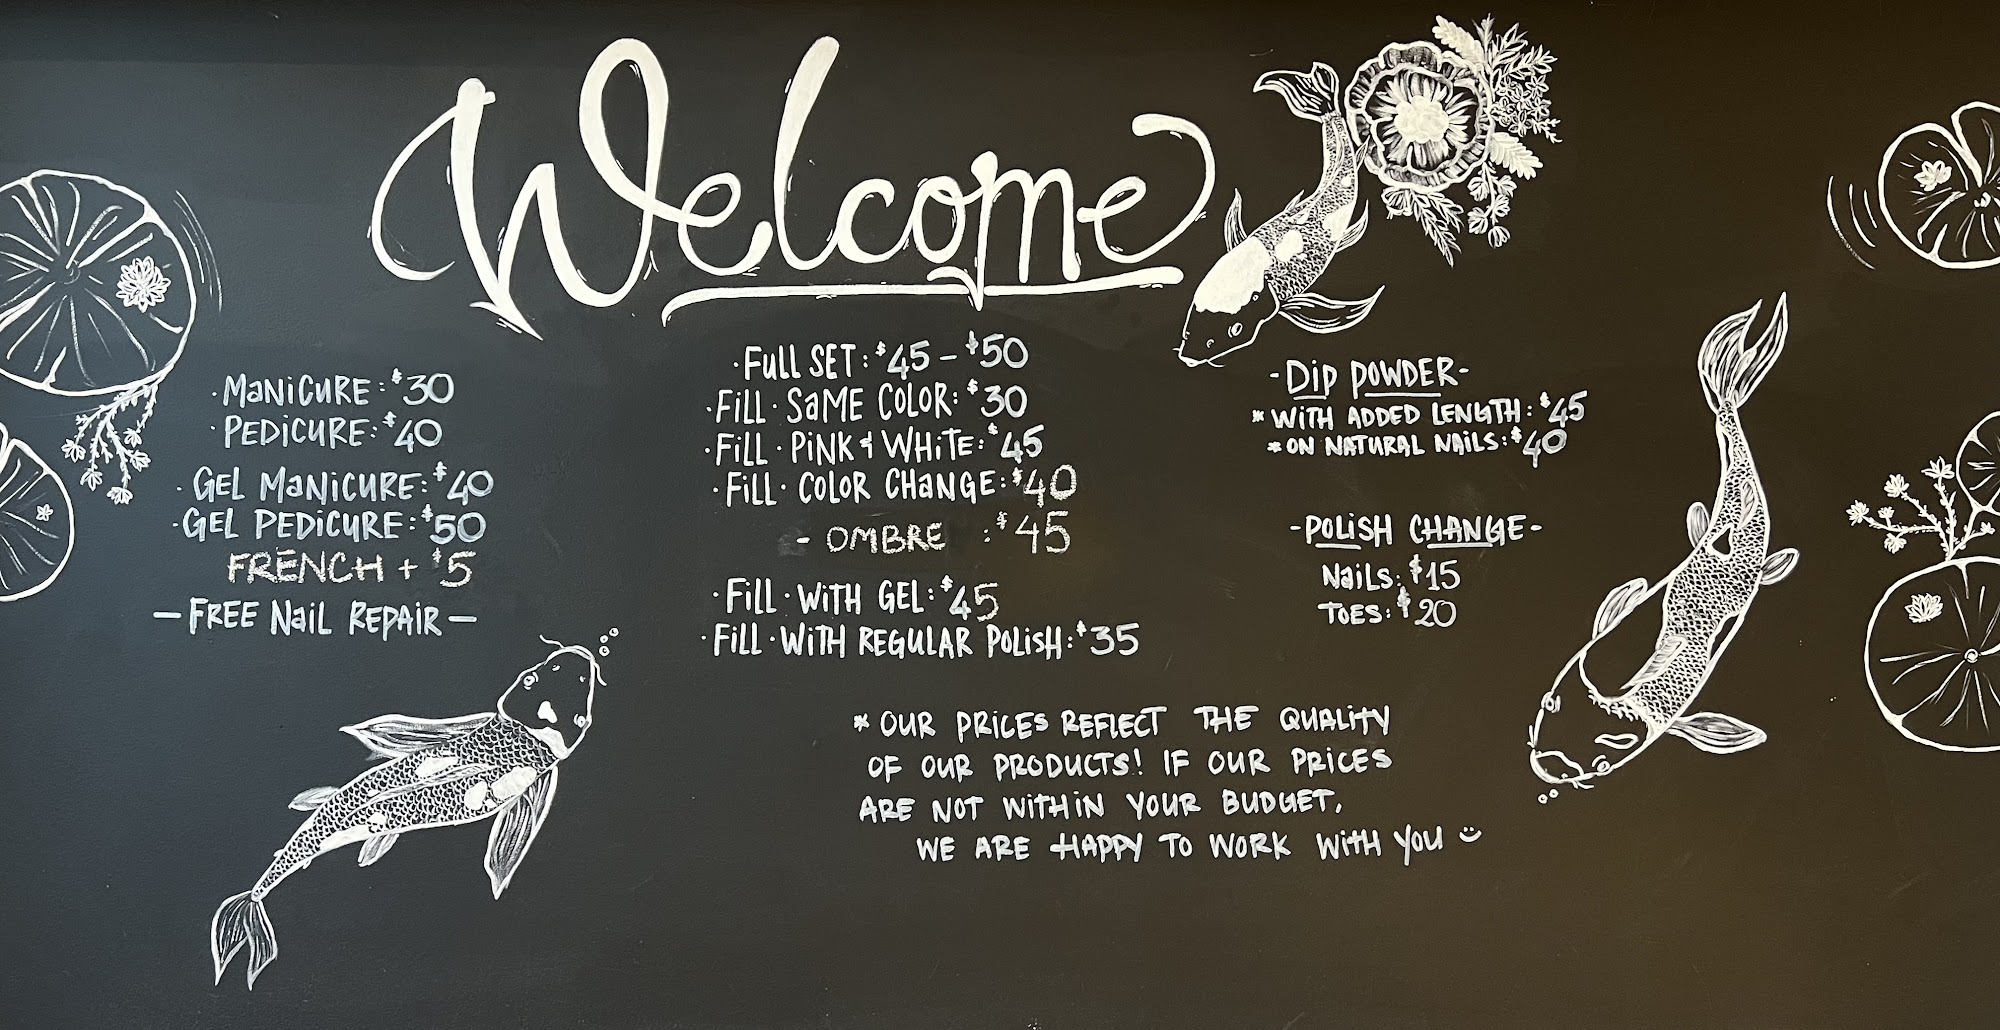 Welcome
· MANICURE: $30
· PEDICURE: $40
· GEL MANICURE: $40
· GEL PEDICURE: $50
FRENCH + $5
— FREE NAIL REPAIR —
· FULL SET: $45 - $50
· FILL · SAME COLOR: $30
· FILL · PINK & WHITE: $45
· FILL · COLOR CHANGE: $40
- OMBRE : $45
· FILL · WITH GEL: $45
· FILL · WITH REGULAR POLISH: $35
- DIP POWDER -
* WITH ADDED LENGTH: $45
* ON NATURAL NAILS: $40
- POLISH CHANGE -
NAILS: $15
TOES: $20
* OUR PRICES REFLECT THE QUALITY
OF OUR PRODUCTS! IF OUR PRICES
ARE NOT WITHIN YOUR BUDGET,
WE ARE HAPPY TO WORK WITH YOU :)